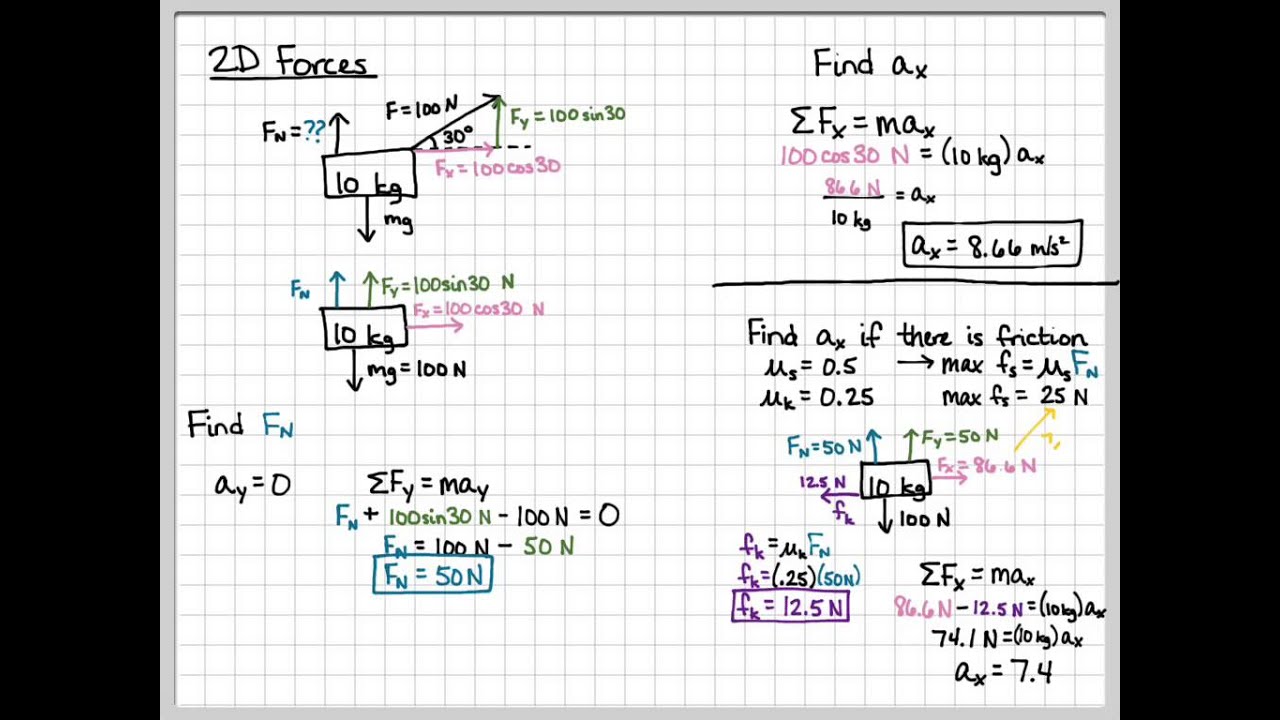 2D Forces
F = 100 N
Fy = 100 sin30
FN = ??
30°
Fx = 100 cos30
10 kg
mg
FN
Fy = 100 sin30 N
Fx = 100 cos30 N
10 kg
mg = 100 N
Find FN
ay = 0
ΣFy = may
FN + 100 sin30 N - 100 N = 0
FN = 100 N - 50 N
FN = 50 N
Find ax
ΣFx = max
100 cos30 N = (10 kg) ax
86.6 N / 10 kg = ax
ax = 8.66 m/s²
Find ax if there is friction
μs = 0.5 → max fs = μs FN
μk = 0.25 max fs = 25 N
FN = 50 N
Fy = 50 N
Fx = 86.6 N
12.5 N
10 kg
fk
100 N
fk = μk FN
fk = (.25)(50N)
fk = 12.5 N
ΣFx = max
86.6 N - 12.5 N = (10 kg) ax
74.1 N = (10 kg) ax
ax = 7.4